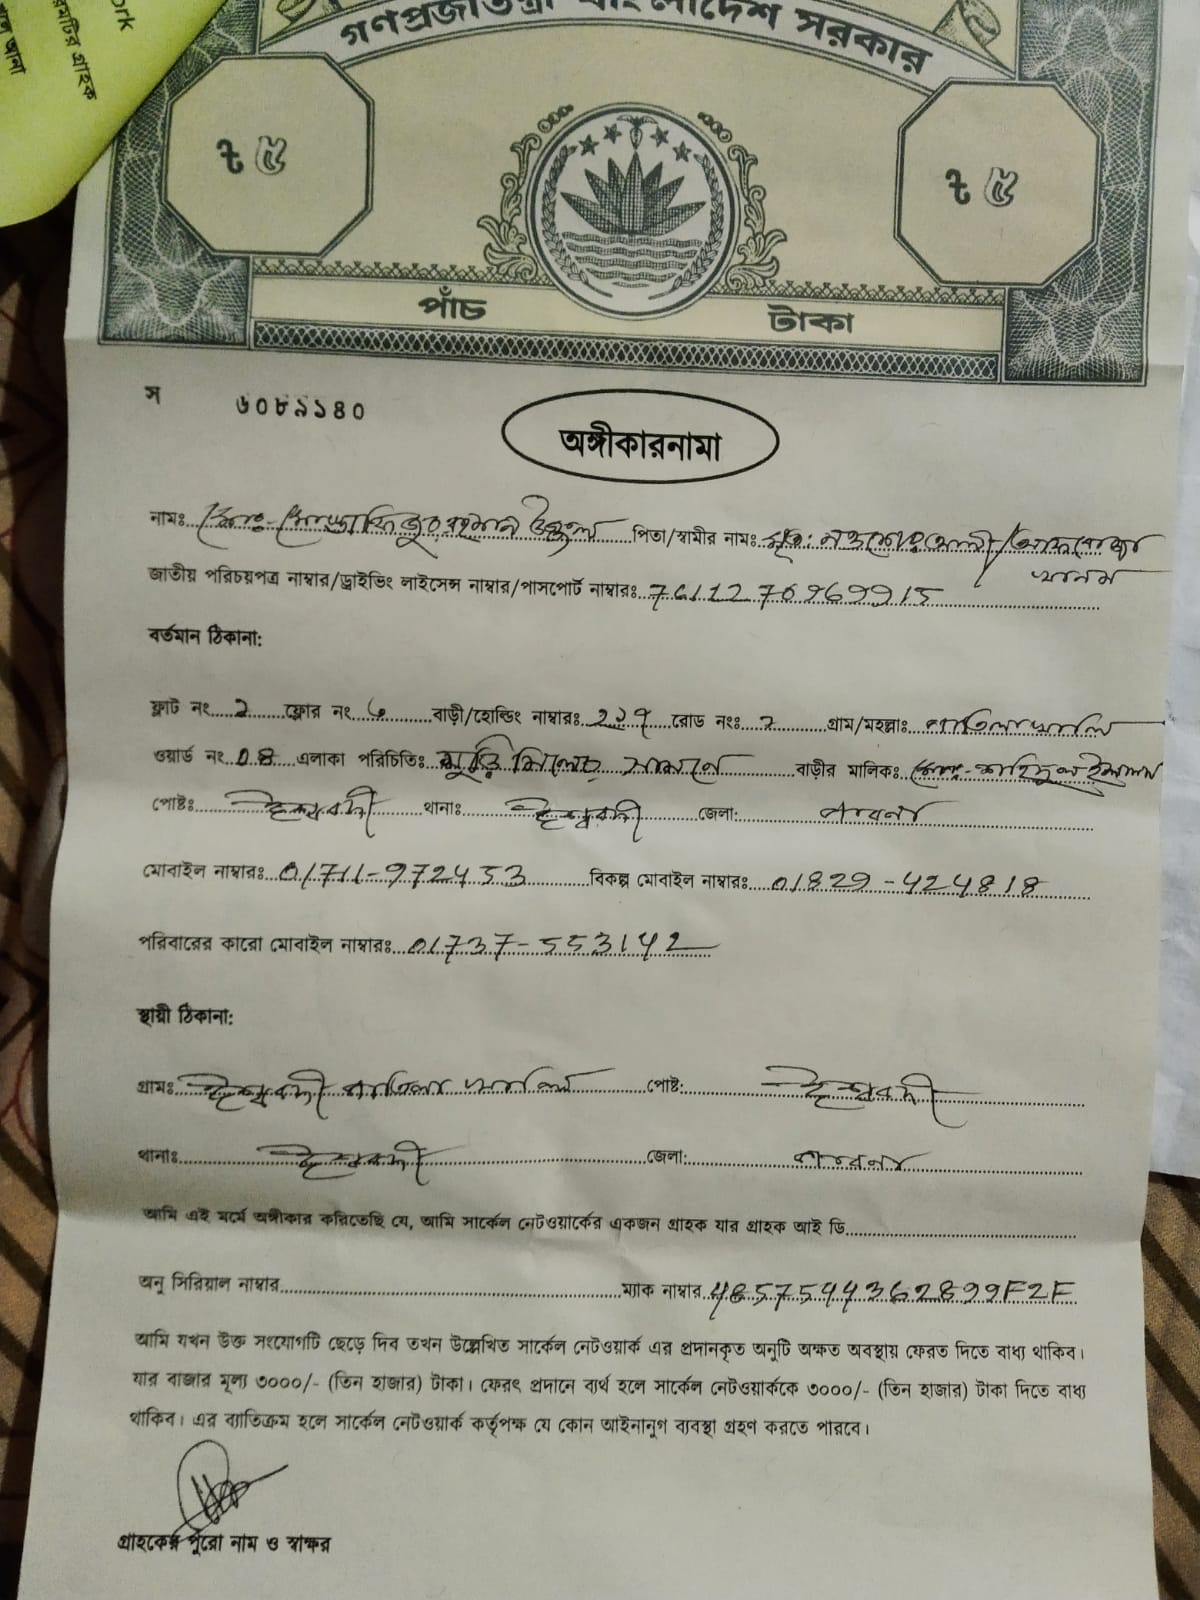 ork
রমটির গ্রাহক
গণপ্রজাতন্ত্রী বাংলাদেশ সরকার
৳ ৫
৳ ৫
পাঁচ টাকা
স ৬০৮৯১৪০
অঙ্গীকারনামা
নামঃ মোঃ- মোস্তাফিজুর রহমান পিতা/স্বামীর নামঃ মৃত:
খানম
জাতীয় পরিচয়পত্র নাম্বার/ড্রাইভিং লাইসেন্স নাম্বার/পাসপোর্ট নাম্বারঃ
বর্তমান ঠিকানা:
ফ্লাট নং ২ ফ্লোর নং ৬ বাড়ী/হোল্ডিং নাম্বারঃ ২১৭ রোড নংঃ গ্রাম/মহল্লাঃ
ওয়ার্ড নং 08 এলাকা পরিচিতিঃ মুড়ি মিলের সামনে বাড়ীর মালিকঃ মোঃ- শহিদুল ইসলাম
পোষ্টঃ ঈশ্বরদী থানাঃ ঈশ্বরদী জেলা: পাবনা
মোবাইল নাম্বারঃ 01711-972453 বিকল্প মোবাইল নাম্বারঃ 01829-424818
পরিবারের কারো মোবাইল নাম্বারঃ 01737-553142
স্থায়ী ঠিকানা:
গ্রামঃ ঈশ্বরদী পোষ্ট: ঈশ্বরদী
থানাঃ ঈশ্বরদী জেলা: পাবনা
আমি এই মর্মে অঙ্গীকার করিতেছি যে, আমি সার্কেল নেটওয়ার্কের একজন গ্রাহক যার গ্রাহক আই ডি
অনু সিরিয়াল নাম্বার ম্যাক নাম্বার
আমি যখন উক্ত সংযোগটি ছেড়ে দিব তখন উল্লেখিত সার্কেল নেটওয়ার্ক এর প্রদানকৃত অনুটি অক্ষত অবস্থায় ফেরত দিতে বাধ্য থাকিব।
যার বাজার মূল্য ৩০০০/- (তিন হাজার) টাকা। ফেরৎ প্রদানে ব্যর্থ হলে সার্কেল নেটওয়ার্ককে ৩০০০/- (তিন হাজার) টাকা দিতে বাধ্য
থাকিব। এর ব্যাতিক্রম হলে সার্কেল নেটওয়ার্ক কর্তৃপক্ষ যে কোন আইনানুগ ব্যবস্থা গ্রহণ করতে পারবে।
গ্রাহকের পুরো নাম ও স্বাক্ষর